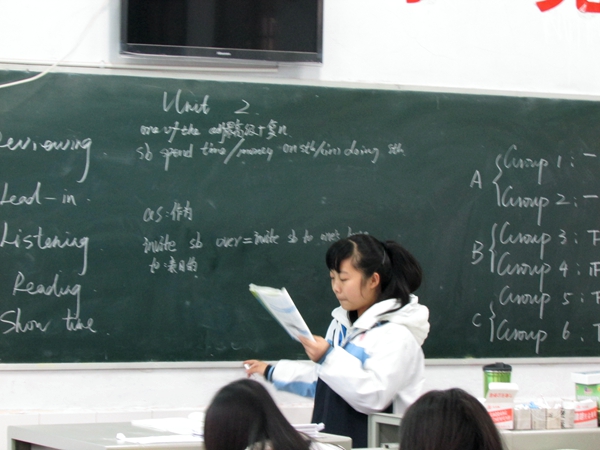 Unit 2
one of the 最高级+复数
sb spend time/money on sth/(in) doing sth
as:作为
invite sb over=invite sb to
to:表目的
Reviewing
Lead-in
Listening
Reading
Show time
A
Group 1: 一
Group 2: 一
B
Group 3:
Group 4: 正
C
Group 5:
Group 6.